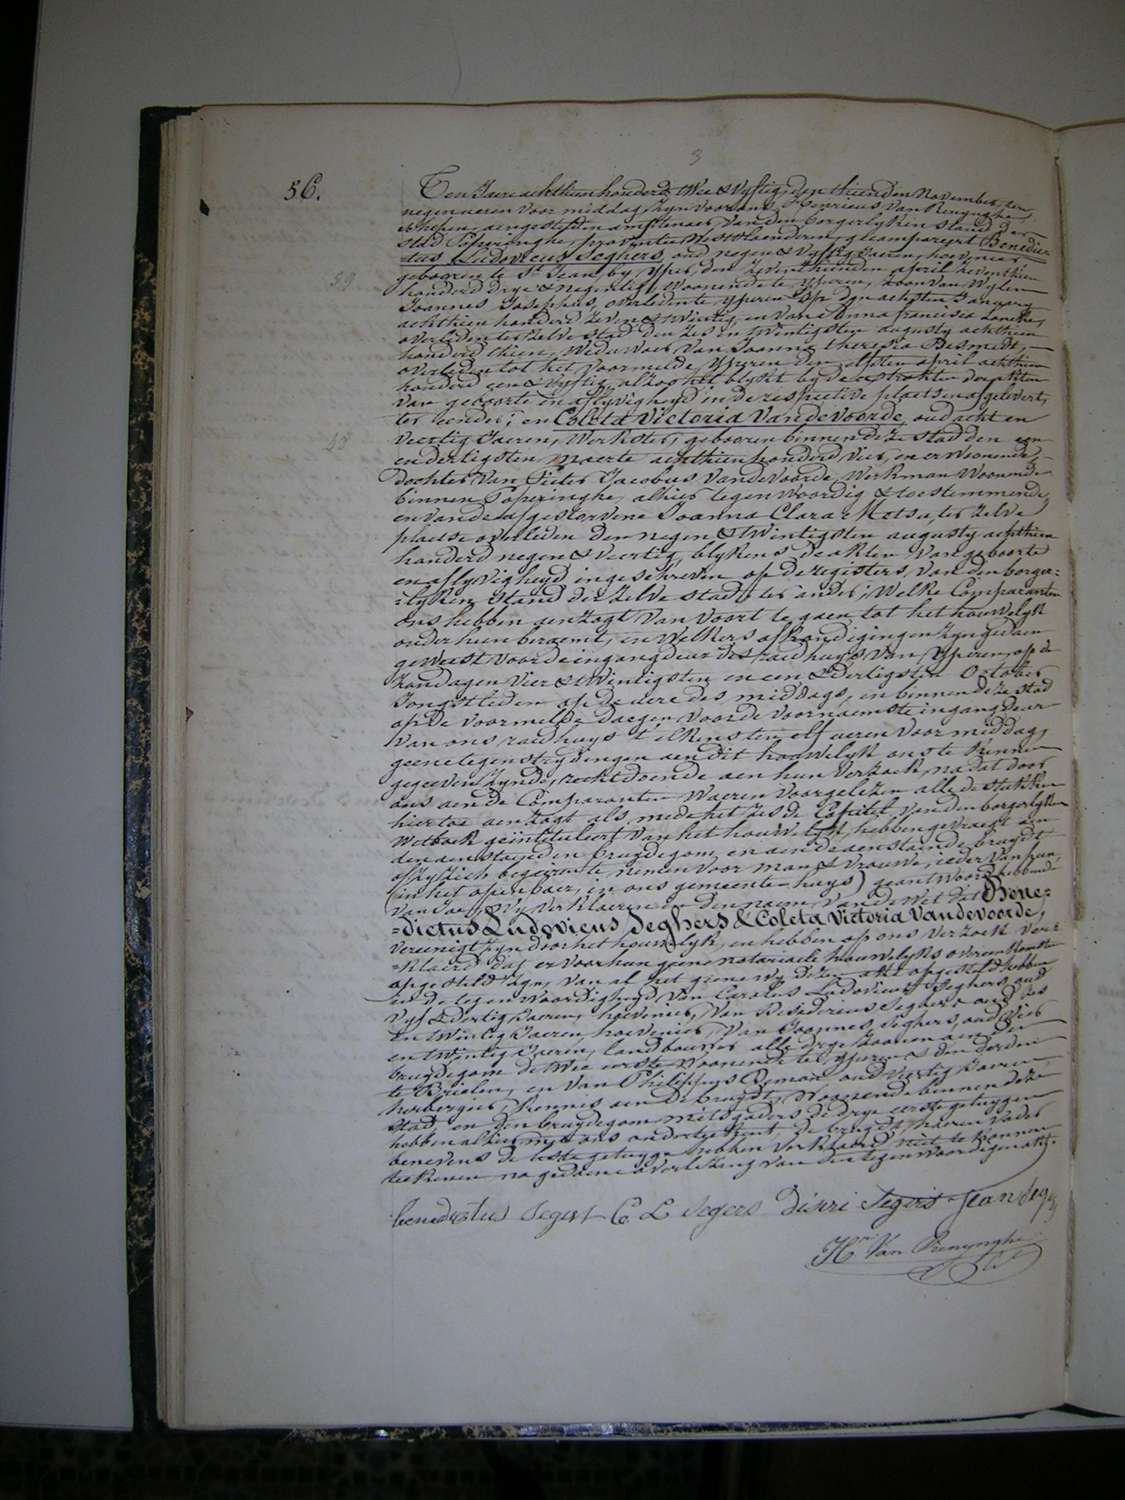 3
56.
Ten Jaere achthien honderd twee & vyftig den thienden November, ten
negen ueren voor middag, zyn voor ons Henricus Van Renynghe,
schepen, aengestelden amptenaer van den borgerlyken stand der
stad Poperinghe, provintie Westvlaenderen, gecompareert Benedic-
tus Ludovicus Seghers, oud negen & vyftig Jaeren, hovenier,
59
gebooren te St Jean, by Yper, den zeventhienden april zeventhien
honderd drye & negentig, woonende te Yperen, zoon van wylen
Joannes Josephus, overleden te Yperen op den achsten January
achthien honderd zeven & twintig, en van Anna francisca
overleden ter zelve stad den zes en twintigsten augusty achthien
honderd thien, Weduwaer van Joanna theresia Desmedt,
overleden tot het voormelde Yperen den elfsten april achthien
honderd een & vyftig, alzoo het blykt by de extrakten der akten
van geboorte en aflyvigheyd in de respective plaetsen afgelevert,
ter eender; en Coleta Victoria Vandevoorde, oud acht en
48
veertig Jaeren, Werkster, gebooren binnen deze stad den een
en dertigsten maerte achthien honderd vier, en er woonende,
dochter van Pieter Jacobus Vandevoorde, Werkman woonende
binnen Poperinghe, alhier tegenwoordig & toestemmende,
en van de afgestorvene Joanna Clara Metsu, ter zelve
plaetse overleden den negen & twintigsten augusty achthien
honderd negen & veertig, blykens de akten van geboorte
en aflyvigheyd ingeschreven op de registers van den borger-
-lyken stand der zelve stad, ter ander; welke Comparanten
ons hebben aenzogt van voort te gaen tot het houwelyk
onder hun beraemt, en welkers afkondigingen zyn gedaen
geweest voor de ingangdeur des raedhuys van Yperen, op de
zondagen vier & twintigsten en een & dertigsten October
Jongstleden op de uere des middags, en binnen deze stad
op de voormelde dagen voor de voornaemste ingangdeur
van ons raedhuys t'elkensten elf ueren voor middag,
geene tegenstrydingen aen dit houwelyk ons te kennen
gegeven zynde, recht doende aen hun verzoek, na dat door
ons aen de Comparanten waeren voorgelezen alle de stukken
hier toe aenzogt als mede het zesde Capitel van den borgerlyken
Wetboek geïntituleert van het houwelyk, hebben gevraegt aen
den aenstaenden bruydegom en aen de aenstaende bruydt
of zy zich begeeren te nemen voor man & vrouwe, ieder van hun,
(in het openbaer, in ons gemeente-huys) geantwoord hebbende
van Jae, Wy verklaeren in den naem van de wet dat Bene-
-dictus Ludovicus Seghers & Coleta Victoria Vandevoorde,
vereenigt zyn door het houwelyk, en hebben op ons verzoek ver-
-klaerd dat er voor hun geene notariaele houwelyks overeenkomste
opgesteld zyn, van al het geene wy deze akte opgesteld hebben
in de tegenwoordigheyd van Carolus Ludovicus Seghers, oud
vyf & dertig Jaeren, hovenier, van Desiderius Seghers oud zes
en twintig Jaeren, hovenier, van Joannes Seghers, oud vier
en twintig Jaeren, landbouwer alle drye zoonen aen den
bruydegom de twee eerste woonende te Yperen & den derden
te Brielen, en van Philippus oud veertig Jaeren,
herbergier, kennis aen de bruydt, woonende binnen deze
stad en den bruydegom mitsgaders de drye eerste getuygen
hebben alhier met ons onderteekent de bruydt, haeren vader
benevens de leste getuyge hebben verklaerd niet te konnen
teekenen na gedaene overlezing van den tegenwoordigen akt.
benedictus Segers C L Segers Disiri Segers Jean Segers
Hri Van Renynghe